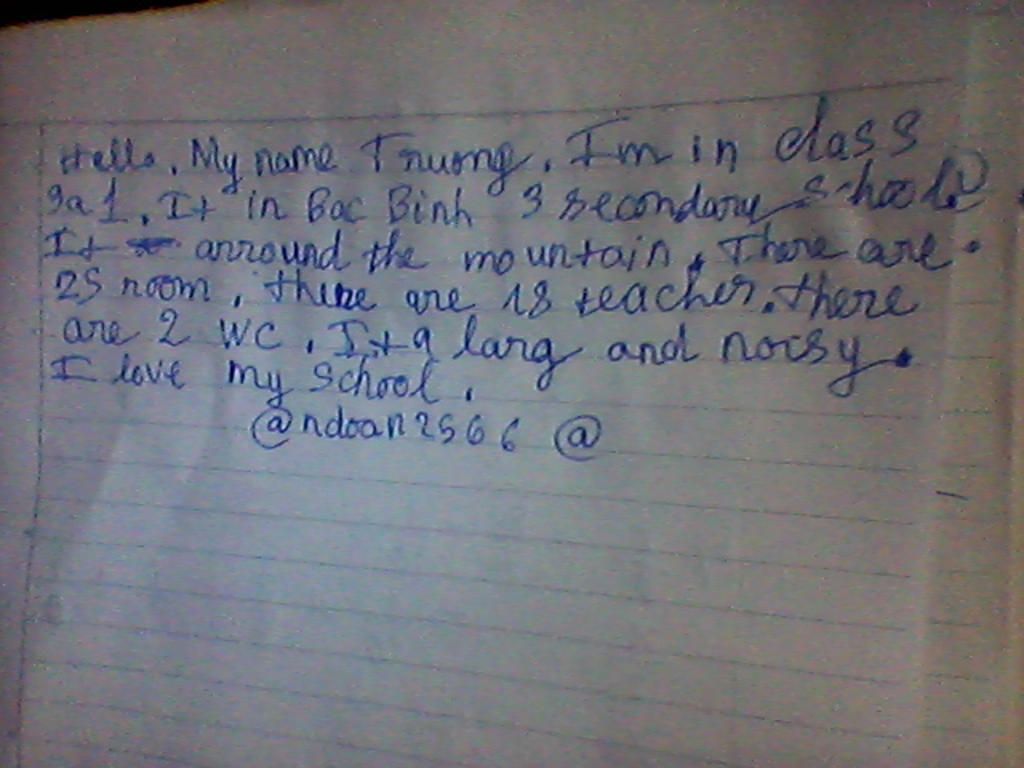 Hello, My name Truong. I'm in class
9a1. It in Bac Binh 3 secondary school@
It arround the mountain, There are.
25 room, there are 18 teacher. there
are 2 WC. It a larg and noisy.
I love my school.
@ndoan2566 @